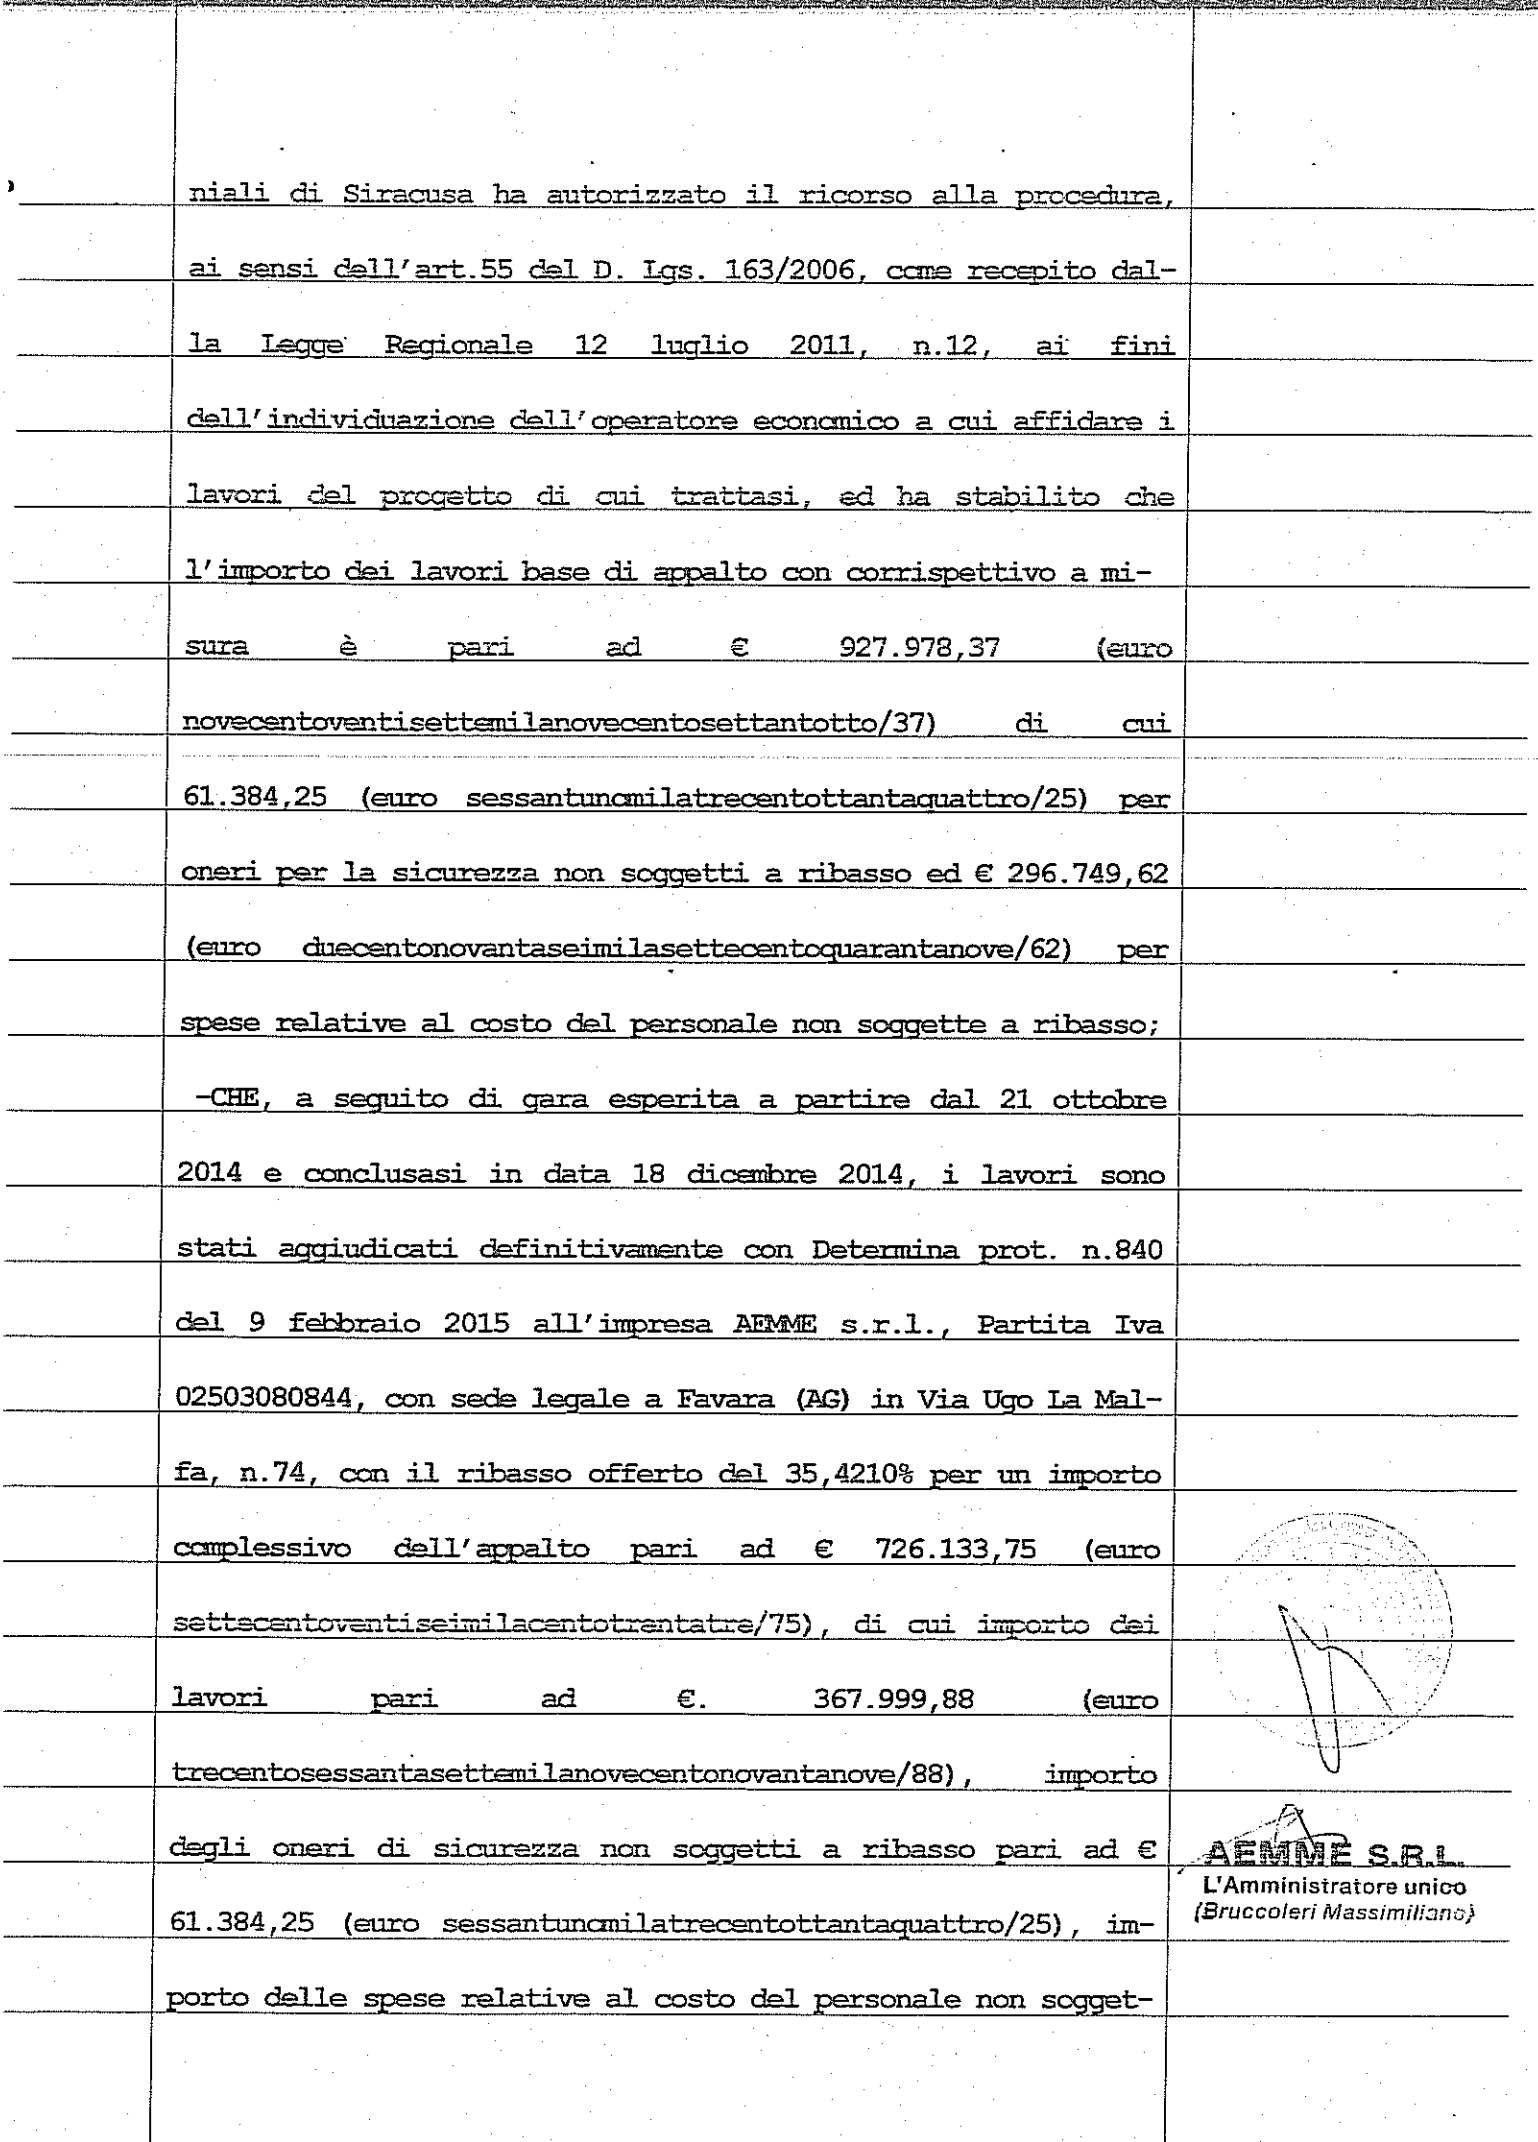 niali di Siracusa ha autorizzato il ricorso alla procedura,
ai sensi dell'art.55 del D. Lgs. 163/2006, come recepito dal-
la Legge Regionale 12 luglio 2011, n.12, ai fini
dell'individuazione dell'operatore economico a cui affidare i
lavori del progetto di cui trattasi, ed ha stabilito che
l'importo dei lavori base di appalto con corrispettivo a mi-
sura è pari ad € 927.978,37 (euro
novecentoventisettemilanovecentosettantotto/37) di cui
61.384,25 (euro sessantunomilatrecentottantaquattro/25) per
oneri per la sicurezza non soggetti a ribasso ed € 296.749,62
(euro duecentonovantaseimilasettecentoquarantanove/62) per
spese relative al costo del personale non soggette a ribasso;
-CHE, a seguito di gara esperita a partire dal 21 ottobre
2014 e conclusasi in data 18 dicembre 2014, i lavori sono
stati aggiudicati definitivamente con Determina prot. n.840
del 9 febbraio 2015 all'impresa AEMME s.r.l., Partita Iva
02503080844, con sede legale a Favara (AG) in Via Ugo La Mal-
fa, n.74, con il ribasso offerto del 35,4210% per un importo
complessivo dell'appalto pari ad € 726.133,75 (euro
settecentoventiseimilacentotrentatre/75), di cui importo dei
lavori pari ad €. 367.999,88 (euro
trecentosessantasettemilanovecentonovantanove/88), importo
degli oneri di sicurezza non soggetti a ribasso pari ad €
61.384,25 (euro sessantunomilatrecentottantaquattro/25), im-
porto delle spese relative al costo del personale non sogget-
AEMME S.R.L.
L'Amministratore unico
(Bruccoleri Massimiliano)